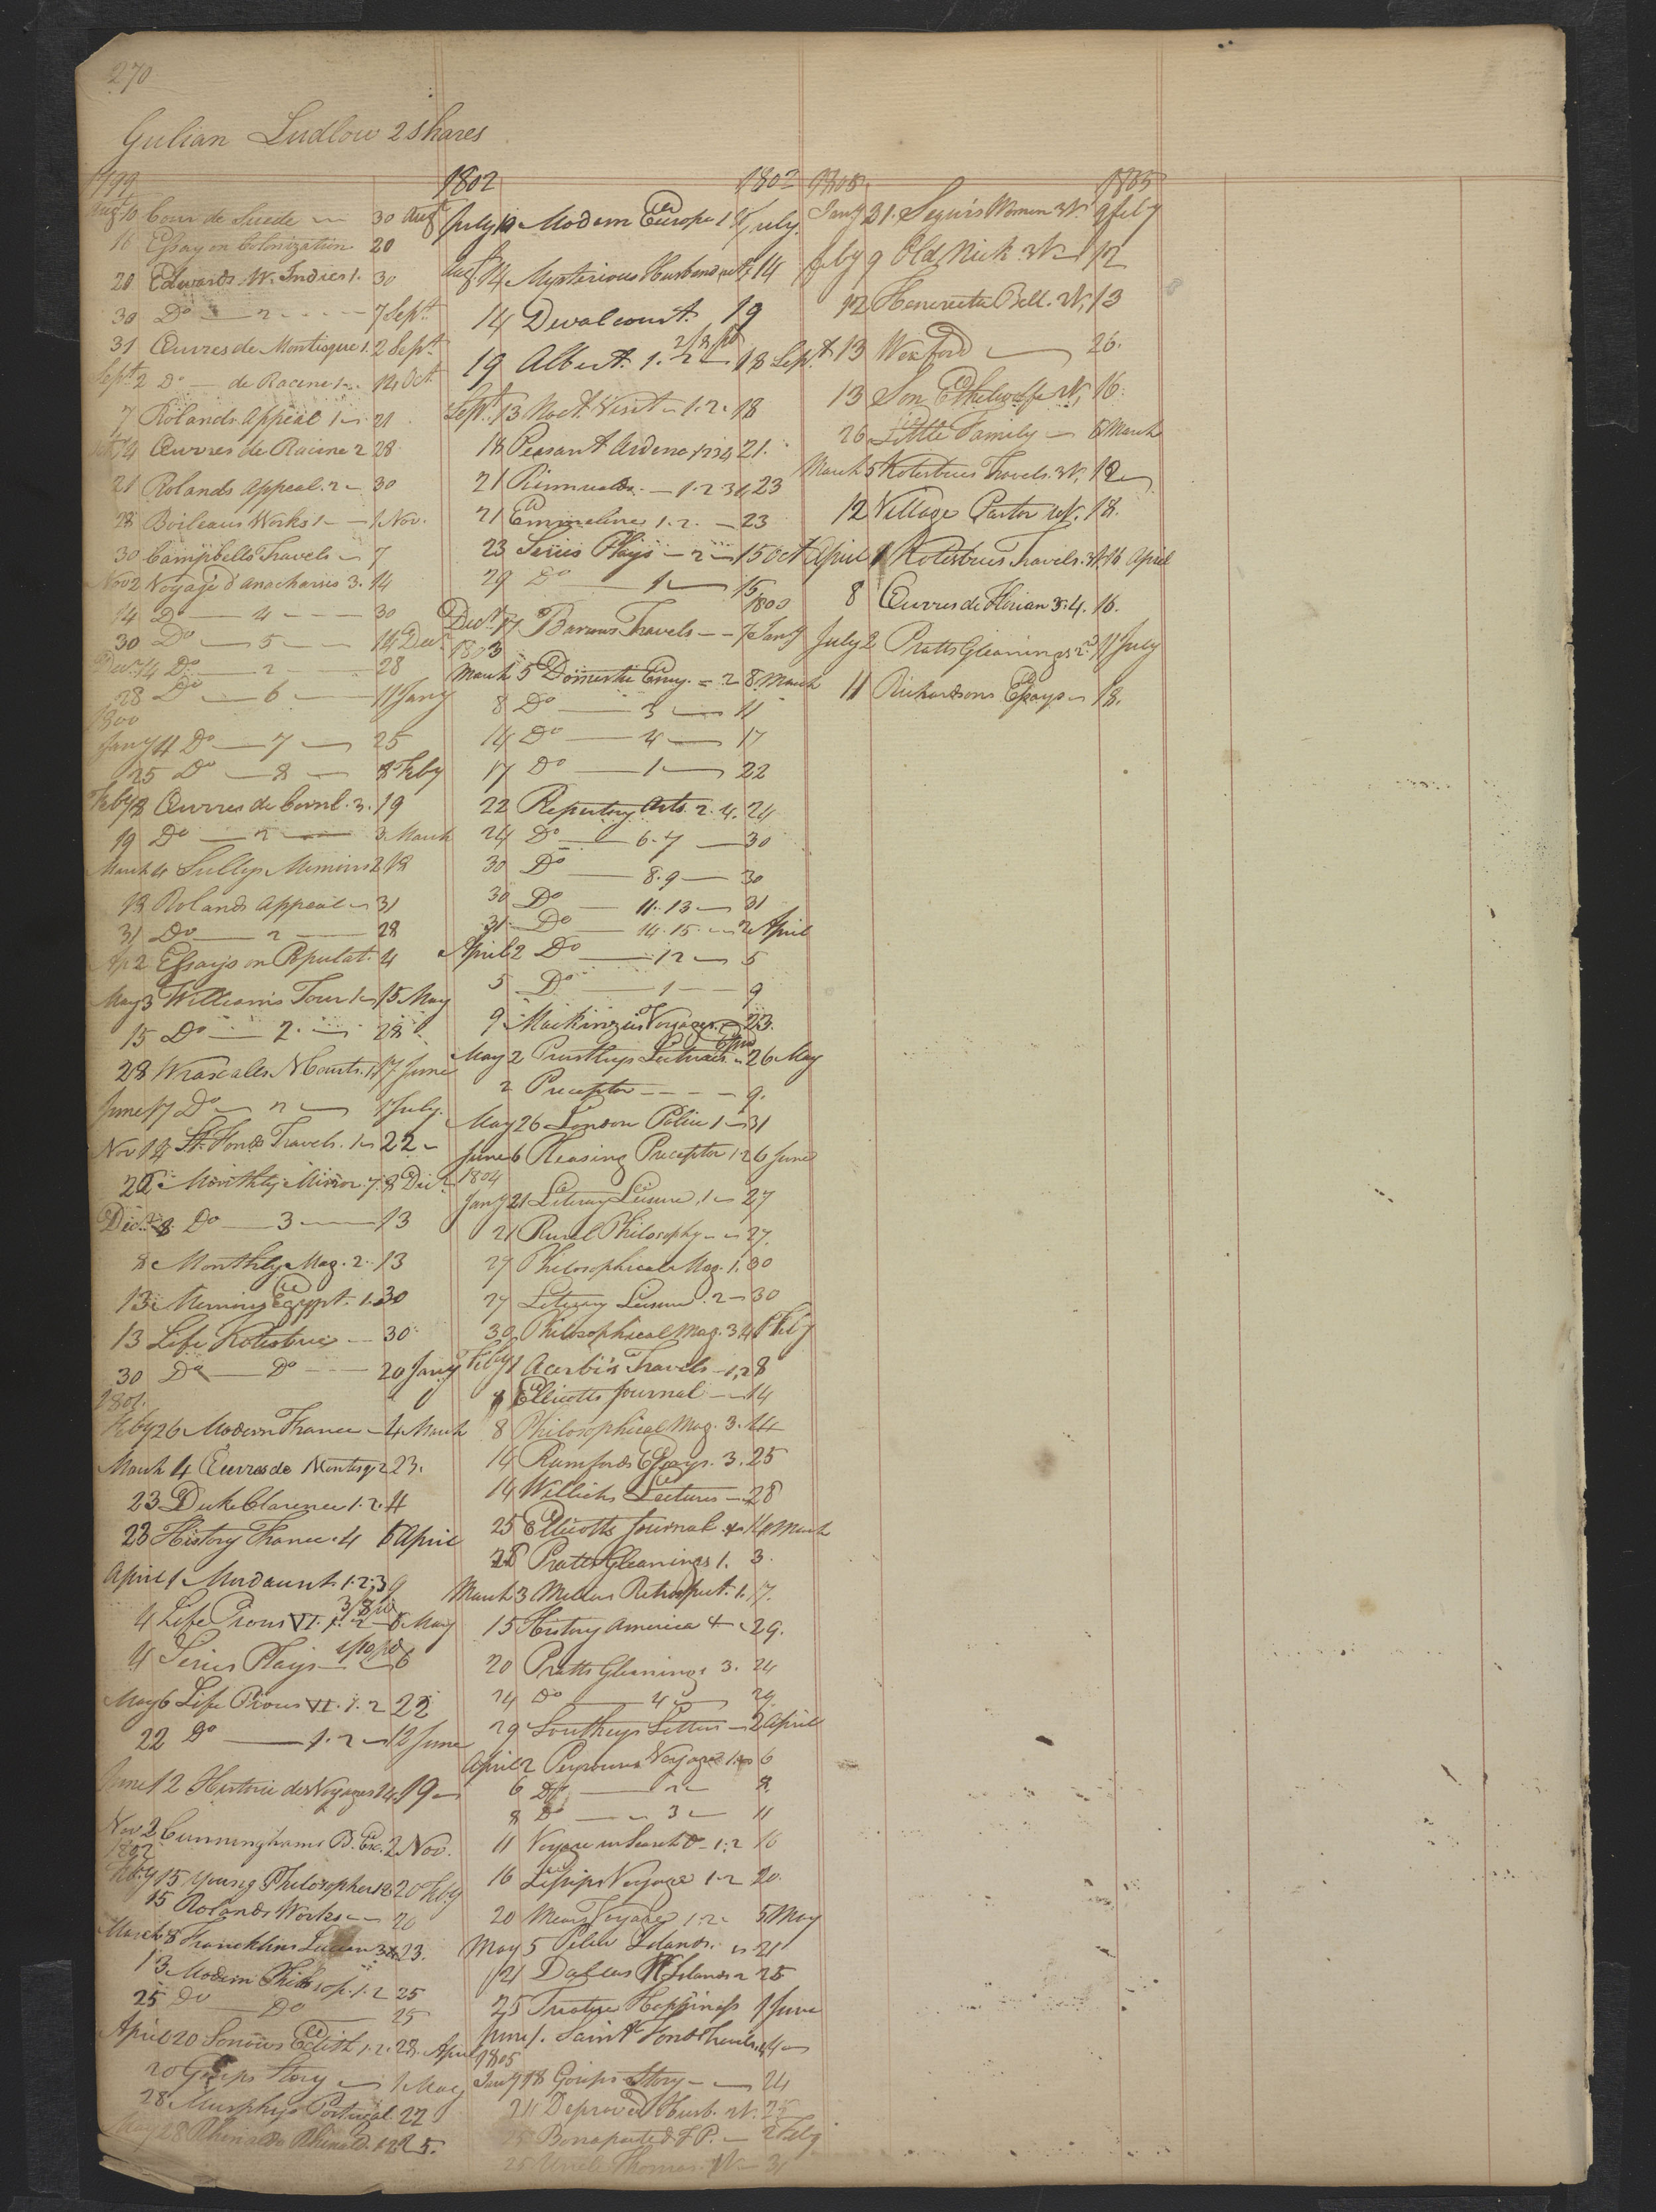 270
Gulian Ludlow 2 shares
1799
Augt 10 Cour de Suede 30 Augt
16 Essay on Colonization 20
20 Edwards W. Indies 1. 30
30 Do 2 7 Sept
31 Œuvres de Montesque 1. 2 Sept
Sept 2 Do de Racine 1 14 Oct
7 Rolands Appeal 1 21
14 Œuvres de Racine 2 28
21 Rolands Appeal. 2 30
28 Boileaus Works 1 1 Nov.
30 Campbells Travels 7
Nov 2 Voyage d'anacharsis 3. 14
14 Do 4 30
30 Do 5 14 Decr
Decr 14 Do 2 28
28 Do 6 11 Jany
1800
Jany 11 Do 7 25
25 Do 8 8 Feby
Feby 8 Œuvres de Cornl. 3. 19
19 Do 2 3 March
March 4 Sullys Memoirs 2 18
18 Rolands Appeal 31
31 Do 2 28
Ap 2 Essays on Populat. 4
May 3 Williams Tour 1 15 May
15 Do 2. 28
28 Wraxalls Courts. 1 17 June
June 17 Do 2 1 July.
Nov 14 St. Fonds Travels. 1 22
22 Monthly Mirror 7. 8 Decr
Decr 8 Do 3 13
8 Monthly Mag. 2. 13
13 Egypt. 1. 30
13 Life Kotzebue 30
30 Do Do 20 Jany
1801.
Feby 26 Modern France 4 March
March 4 Œuvres de Montesq 2 23.
23 Duke Clarence 1. 2. 4
23 History France. 4 6 April
April 1 Mordaunt. 1. 2. 3 9
4 Life Pious VI. 1. 2 3/8 pd 6 May
4 Series Plays 6
May 6 Life Pious VI. 1. 2 22
22 Do 1. 2 12 June
June 12 Histoire des Voyages 14. 19
Nov 2 Cunninghams B. Ex. 2 Nov.
1802
Feby 15 Young Philosopher 1 2. 20 Feby
15 Rolands Works 20
March 8 Francklins Lucian 3 23.
13 Modern Philosop. 1. 2 25
25 Do Do 25
April 20 Sorrows Edith 1. 2. 28. April
20 Gosips Story 1 May
28 Murphys Portugal. 22
May 28 Rhinaldo Rhinald. 1 2 2 5.
1802 1802
July 10 Modern Europe 1 July.
Augt 14 Mysterious Husband 14
14 Devalcourt. 19
19 Albert. 1. 2 18 Sept.
Sept. 13 Noct. Visit 1. 2. 18
18 Peasant Ardena 1 2 3 4 21.
21 1. 2 3 4 23
21 Emmeline 1. 2. 23
23 Series Plays 2 15 Oct
29 Do 1 15
1800
Decr 17 Barrows Travels 7 Jany
1803
March 5 Domestic Ency. 2 8 March
8 Do 3 11
14 Do 4 17
17 Do 1 22
22 Repertory Arts. 2. 4. 24
24 Do 6. 7 30
30 Do 8. 9 30
30 Do 11. 13 31
31 Do 14. 15. 2 April
April 2 Do 12 5
5 Do 1 9
9 Mackinzies Voyages 23.
May 2 Priestleys Lectures 26 May
2 Preceptor 9.
May 26 London Police 1 31
June 6 Pleasing Preceptor 1. 2 6 June
1804
Jany 21 Literary Leisure, 1 27
21 Rural Philosophy 27.
27 Philosophical Mag. 1. 30
27 Literary Leisure. 2 30
30 Philosophical Mag. 3 4 1 Feby
Feby 1 Acerbi's Travels 1, 2 8
8 Ellicotts Journal 14
8 Philosophical Mag. 3. 14
14 Rumfords Essays. 3. 25
14 Willichs Lectures 28
25 Ellicotts Journal 14 March
28 Pratts Gleanings 1. 3.
March 3 Millers Retrospect. 1. 17.
15 History America 4 29.
20 Pratts Gleanings 3. 24
24 Do 4 29.
29 Southeys Letters 2 April
April 2 Voyage 1 6
6 Do 2 8
8 Do 3 11
11 Voyage in Search 1. 2 16
16 Voyage 1. 2 20.
20 Mears Voyages 1. 2. 5 May
May 5 Pelew Islands. 21
21 Dallas Islands 2 25
25 Treatise Happiness 1 June
June 1. Saint Fonds Travels. 4
1805
Jany 18 Gosips Story 24
24 Depraved Husb. W. 25
25 Bonaparte & F P. 2 Feby
25 Uncle Thomas. W 31
1805 1805
Jany 31. Segurs Women 3 W. 9 feby
feby 9 Old Nick 3 W 12
12 Henrietta Bell. W, 13
13 Wexford 26.
13 Son Ethelwolf W, 16.
26 Little Family 5 March
March 5 Kotzebues Travels. 3 W. 12
12 Village Pastor W. 18.
April 1 Kotzebues Travels. 3 W. 16 April
8 Œuvres de Florian 3. 4. 16.
July 2 Pratts Gleanings 2. 11 July
11 Richardsons Essays 18.